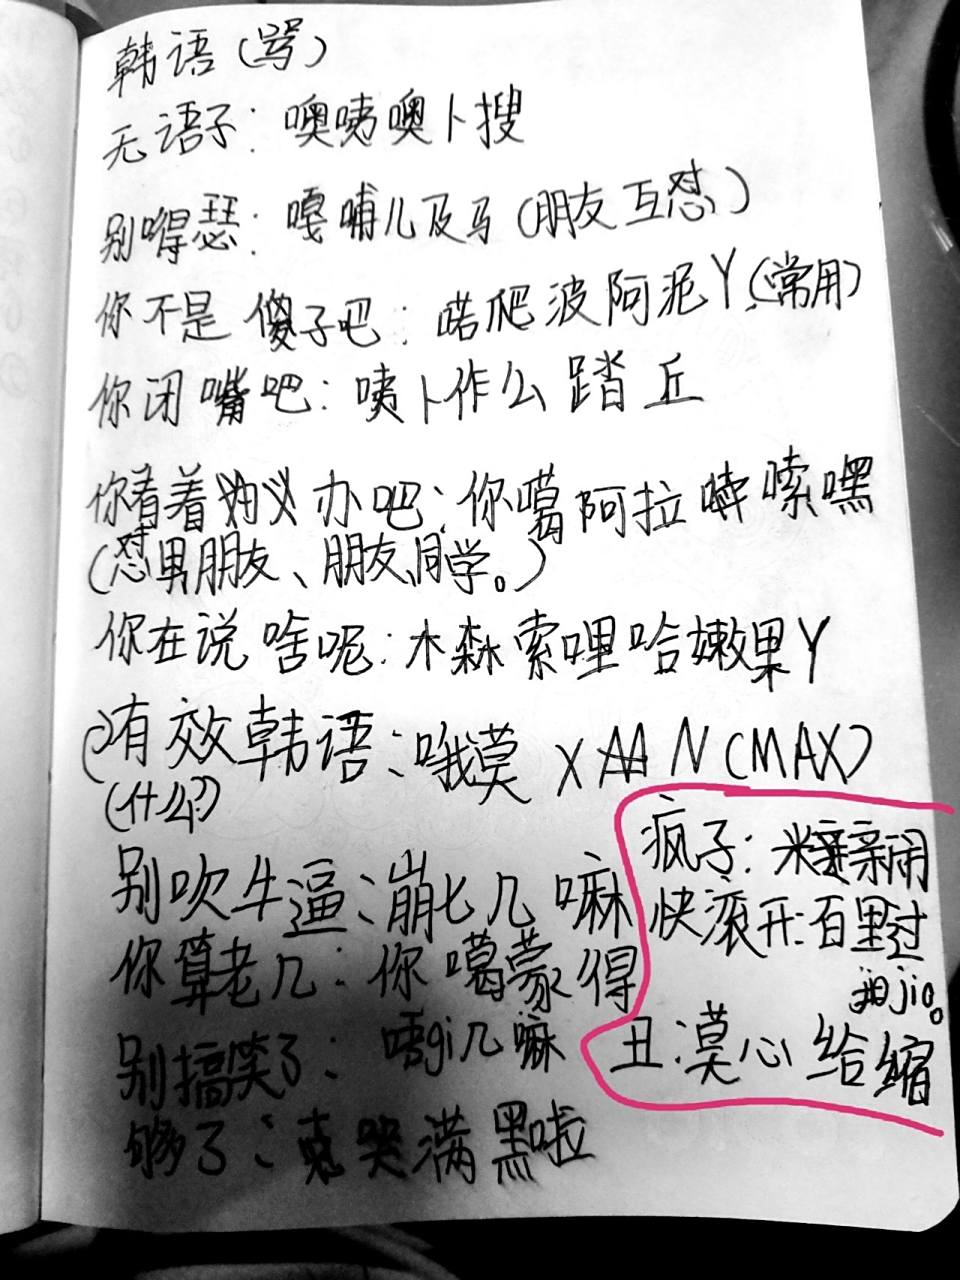 韩语(骂)
无语子：噢咦噢卜搜
别嘚瑟：嘎哺儿及马(朋友互怼)
你不是傻子吧：喏爬波阿泥丫(常用)
你闭嘴吧：咦卜作么踏丘
你看着办吧：你噶阿拉嗦嘿
(怼男朋友、朋友、同学。)
你在说啥呢：木森索哩哈嫩果丫
有效韩语：哦莫 X N(MAX)
(什么?)
别吹牛逼：崩七几嘛
你算老几：你噶蒙得
别搞笑了：唔gi几嘛
够了：克哭满黑啦
疯子：米亲闹
快滚开：百里过
jio。
丑：莫心给缩